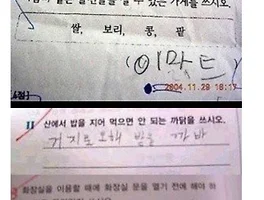 쌀, 보리, 콩, 팥
(이마트)
2004.11.29 18:17
산에서 밥을 지어 먹으면 안 되는 까닭을 쓰시오.
거지로 오해 받을 까봐
화장실을 이용할 때에 화장실 문을 열기 전에 해야 하